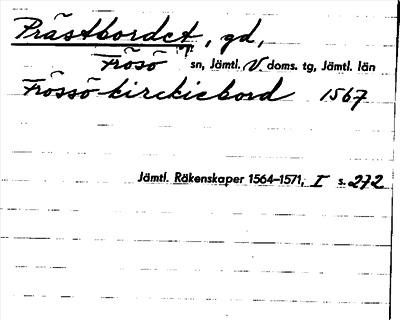 Prästbordet, gd,
Frösö sn, Jämtl. V. doms. tg, Jämtl. län
Frössö kirckiebord 1567
Jämtl. Räkenskaper 1564–1571, I s. 272